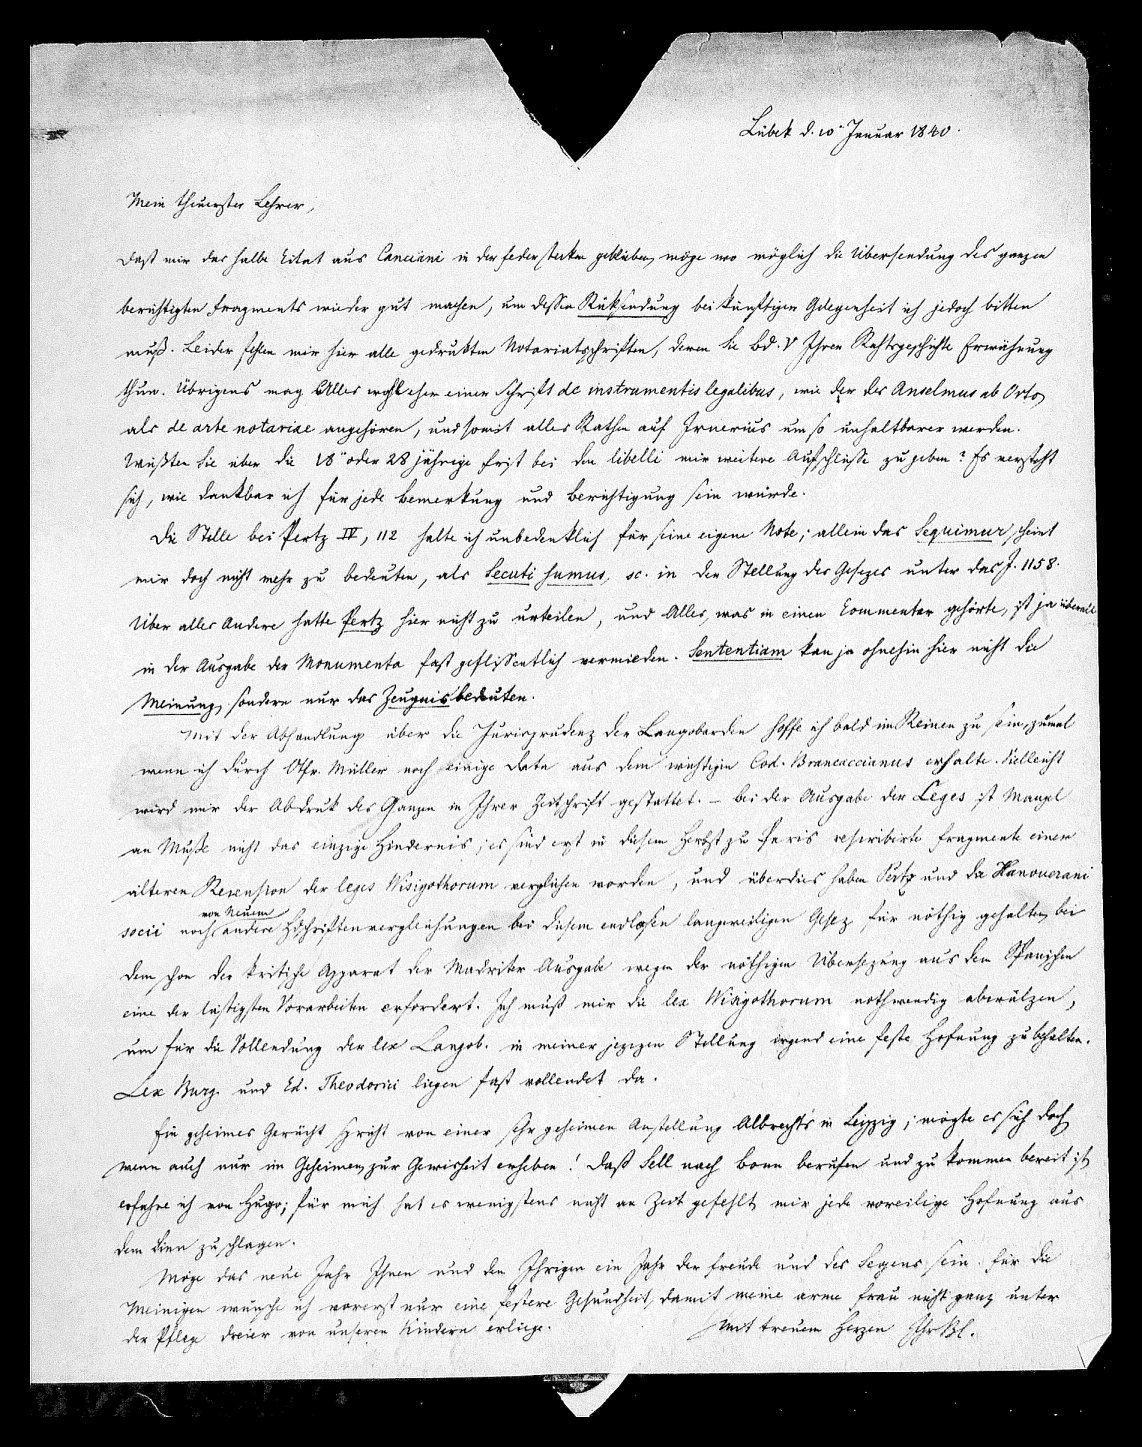 Lübek d. 10ᵗ Januar 1840.
Mein theuerster Lehrer,
Daß mir das halbe Citat aus Canciani in der Feder steken geblieben, möge wo möglich die Übersendung des ganzen
berichtigten Fragments wieder gut machen, um dessen Rüksendung bei künftigen Gelegenheit ich jedoch bitten
muß. Leider fehlen mir hier alle gedrukten Notariatsschriften, deren Sie Bd. V Ihrer Rechtsgeschichte Erwähnung
thun. Übrigens mag Alles wohl eher einer Schrift de instrumentis legalibus, wie der des Anselmus ab Orto,
als de arte notariae angehören, und somit alles Rathen auf Irnerius um so unhaltbarer werden.
Wüßten Sie über die 18 oder 28 jährige Frist bei den libelli mir weitere Aufschlüsse zu geben? Es versteht
sich, wie dankbar ich für jede Bemerkung und Berichtigung sein würde.
Die Stelle bei Pertz IV, 112 halte ich unbedenklich für seine eigene Note; allein das Sequimur scheint
mir doch nicht mehr zu bedeuten, als Secuti sumus, sc. in der Stellung des Gesezes unter das J. 1158.
Über alles Andere hatte Pertz hier nicht zu urteilen, und Alles, was in einen Commentar gehörte, ist ja überall
in der Ausgabe der Monumenta fast geflissentlich vermieden. Sententiam kan ja ohnehin hier nicht die
Meinung, sondern nur das Zeugnis bedeuten.
Mit der Abhandlung über die Jurisprudenz der Langobarden hoffe ich bald im Reinen zu sein, zumal
wenn ich durch Otfr. Müller noch einige Data aus dem wichtigen Cod. Brancaccianus erhalte. Vielleicht
wird mir der Abdruk des Ganzen in Ihrer Zeitschrift gestattet. – Bei der Ausgabe der Leges ist Mangel
an Muße nicht das einzige Hindernis; es sind erst in diesem Herbst zu Paris rescribirte Fragmente einer
älteren Recension der leges Wisigothorum verglichen worden, und überdies haben Pertz und die Hanoverani
socii noch von Neuem andere Hdschriftenvergleichungen bei diesem endlosen langweiligen Gesez für nöthig gehalten, bei
dem schon der kritische Apparat der Madriter Ausgabe wegen der nöthigen Übersezung aus dem Spanischen
eine der lästigsten Vorarbeiten erfordert. Ich muß mir die lex Wisigothorum nothwendig abwälzen,
um für die Vollendung der lex Langob. in meiner jezigen Stellung irgend eine feste Hofnung zu behalten.
Lex Burg. und Ed. Theodorici liegen fast vollendet da.
Ein geheimes Gerücht spricht von einer sehr geheimen Anstellung Albrecht's in Leipzig; mögte es sich doch,
wenn auch nur im Geheimen, zur Gewisheit erheben! Daß Sell nach Bonn berufen und zu kommen bereit ist,
erfahre ich von Hugo; für mich hat es wenigstens nicht an Zeit gefehlt, mir jede voreilige Hofnung aus
dem Sinn zu schlagen.
Möge das neue Jahr Ihnen und den Ihrigen ein Jahr der Freude und des Segens sein. Für die
Meinigen wünsche ich vorerst nur eine festere Gesundheit, damit meine arme Frau nicht ganz unter
der Pflege dreier von unseren Kindern erliege. Mit treuem Herzen Ihr Bl.